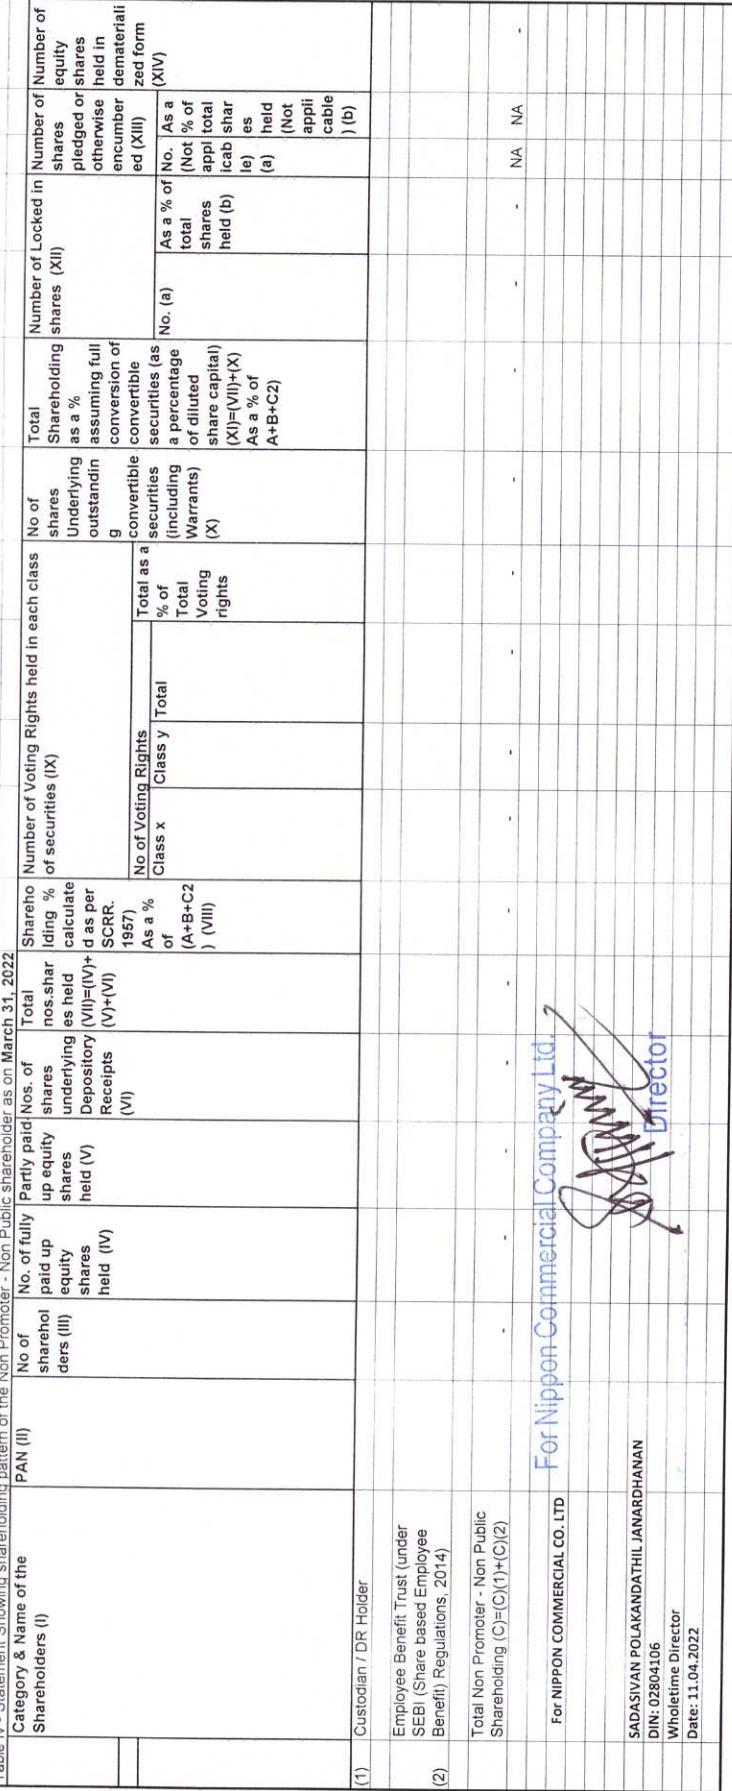 Table IV - Statement Showing shareholding pattern of the Non Promoter - Non Public shareholder as on March 31, 2022
Category & Name of the
Shareholders (I)
PAN (II)
No of
sharehol
ders (III)
No. of fully
paid up
equity
shares
held (IV)
Partly paid-
up equity
shares
held (V)
Nos. of
shares
underlying
Depository
Receipts
(VI)
Total
nos.shar
es held
(VII)=(IV)+
(V)+(VI)
Shareho
lding %
calculate
d as per
SCRR.
1957)
As a %
of
(A+B+C2
) (VIII)
Number of Voting Rights held in each class
of securities (IX)
No of Voting Rights
Class x
Class y
Total
Total as a
% of
Total
Voting
rights
No of
shares
Underlying
outstandin
g
convertible
securities
(including
Warrants)
(X)
Total
Shareholding
as a %
assuming full
conversion of
convertible
securities (as
a percentage
of diluted
share capital)
(XI)=(VII)+(X)
As a % of
A+B+C2)
Number of Locked in
shares (XII)
No. (a)
As a % of
total
shares
held (b)
Number of
shares
pledged or
otherwise
encumber
ed (XIII)
No.
(Not
appl
icab
le)
(a)
As a
% of
total
shar
es
held
(Not
appli
cable
) (b)
Number of
equity
shares
held in
demateriali
zed form
(XIV)
(1) Custodian / DR Holder
Employee Benefit Trust (under
SEBI (Share based Employee
(2) Benefit) Regulations, 2014)
Total Non Promoter - Non Public
Shareholding (C)=(C)(1)+(C)(2)
- - - - - - - - - - - - - NA NA -
For NIPPON COMMERCIAL CO. LTD
For Nippon Commercial Company Ltd.
Director
SADASIVAN POLAKANDATHIL JANARDHANAN
DIN: 02804106
Wholetime Director
Date: 11.04.2022